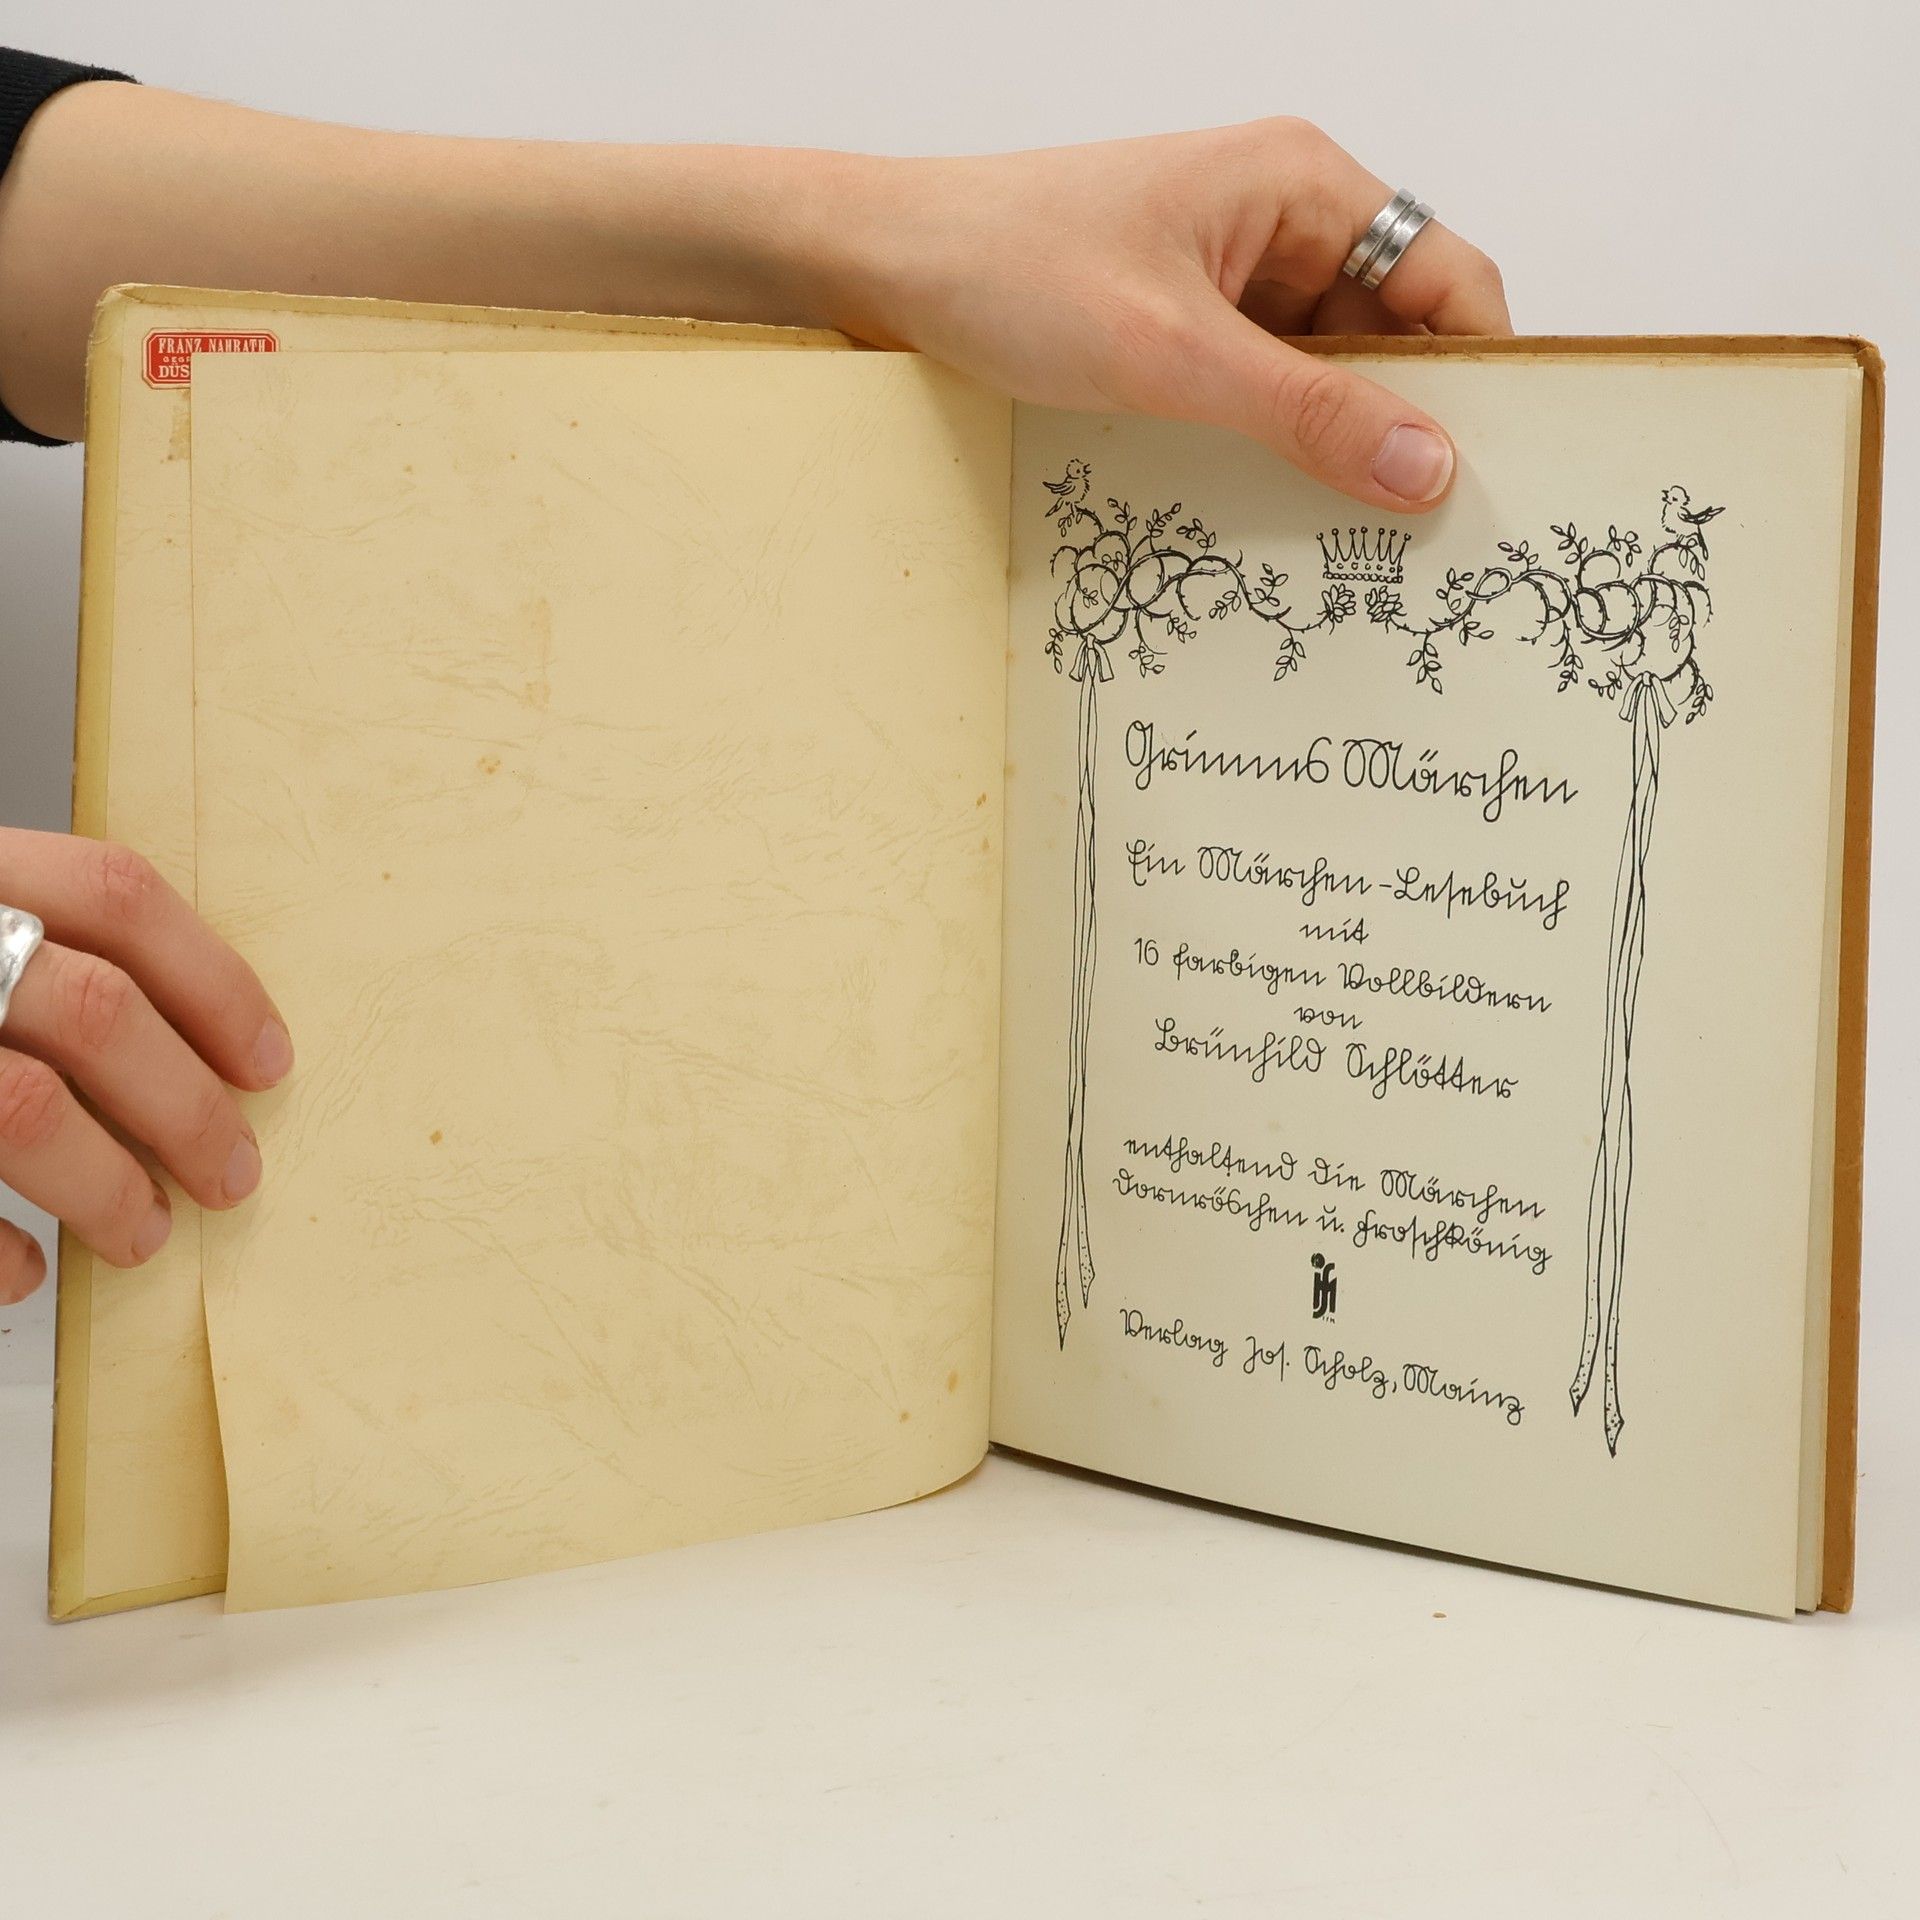 FRANZ NAHRATH
Grimms Märchen
Ein Märchen-Lesebuch
mit
16 farbigen Vollbildern
von
Brünhild Schlötter
enthaltend die Märchen
Dornröschen u. Froschkönig
Verlag Jos. Scholz, Mainz